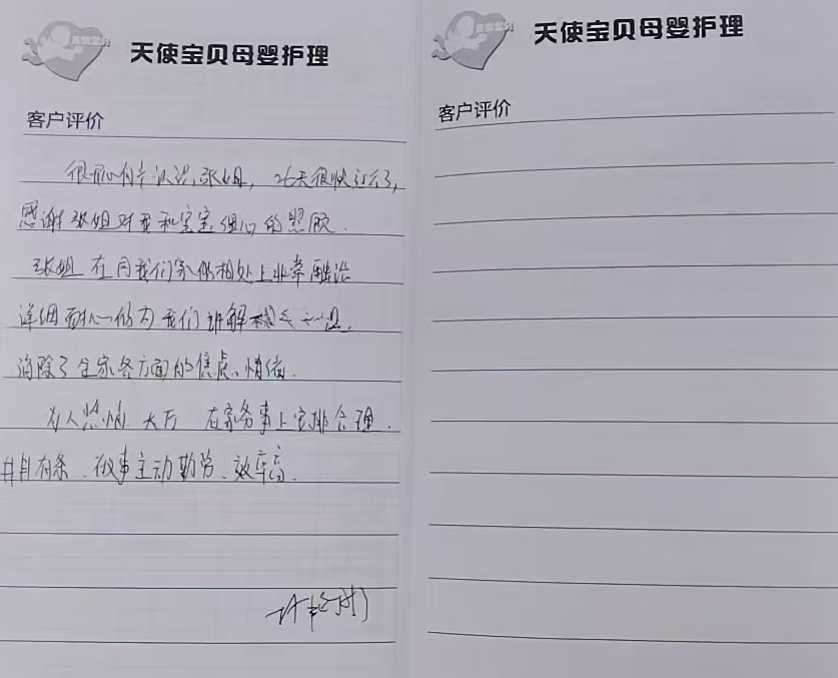 天使宝贝母婴护理
客户评价
很荣幸认识张姐，26天很快过去了，
感谢张姐对我和宝宝细心的照顾.
张姐在同我们家人相处上非常融洽
详细耐心的为我们讲解
消除了全家各方面的焦虑、情绪.
为人热情 大方 在家务事上安排合理.
井井有条.做事主动勤劳、效率高.
天使宝贝母婴护理
客户评价